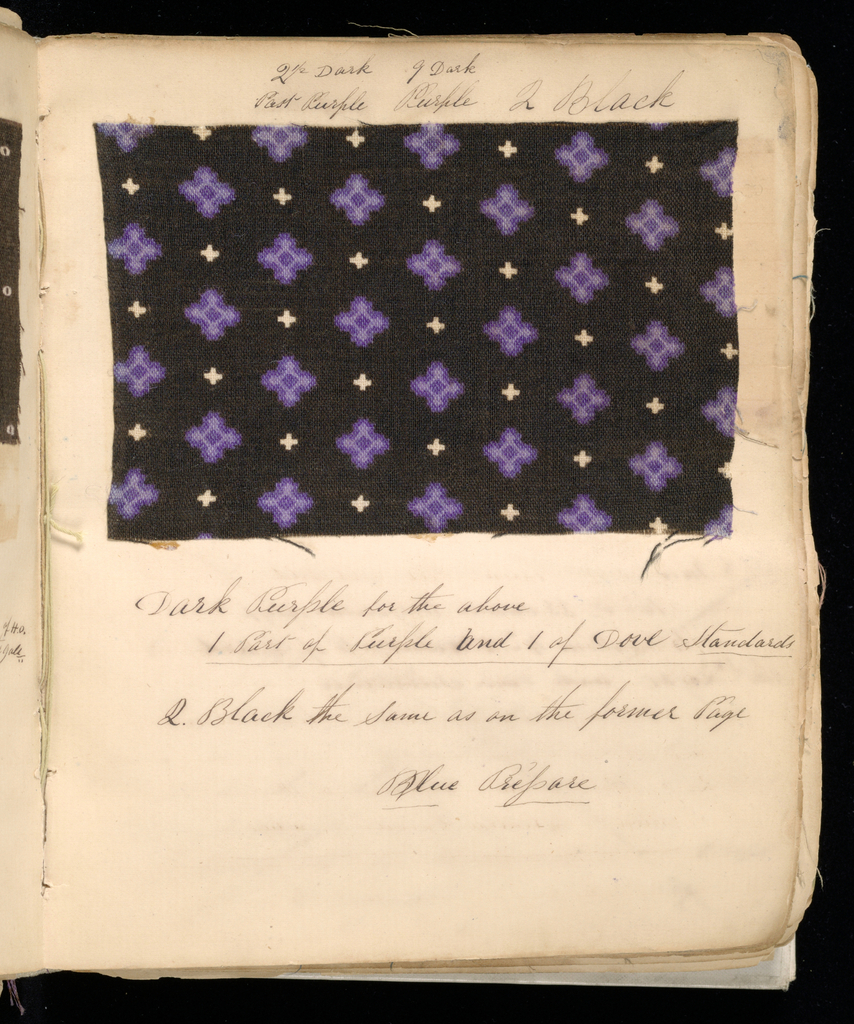 2½ Dark 9 Dark
Past Purple Purple 2 Black
Dark Purple for the above
1 Part of Purple and 1 of Dove Standards
2. Black the same as on the former Page
Blue Prepare